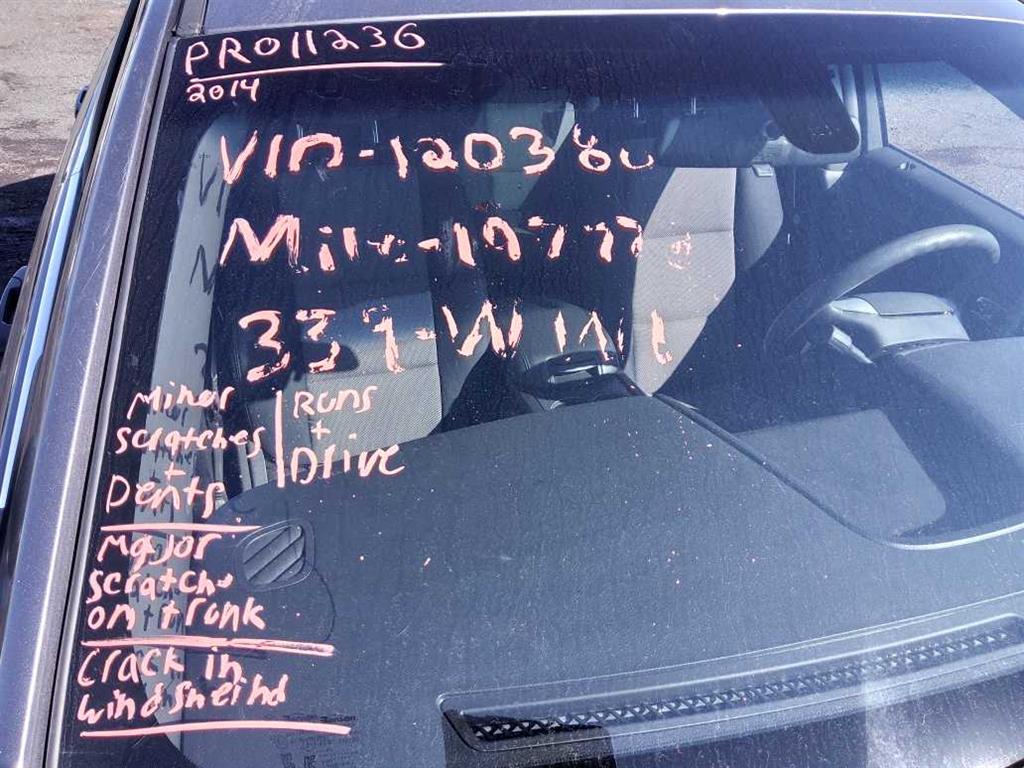 PRO11236
2014
VIN-120380
Minor
scratches
+
Dents
Runs
+
Drive
Major
scratch
on trunk
Crack in
windsheild